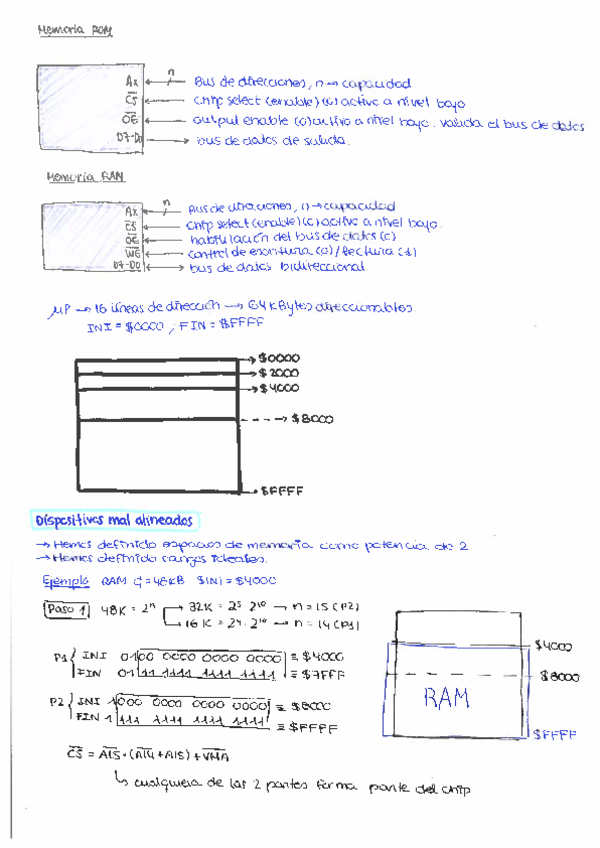 Memoria ROM
n
Ax Bus de direcciones, n → capacidad
C̅S̅ chip select (enable) (c) activo a nivel bajo
O̅E̅ output enable (c) activo a nivel bajo. valida el bus de datos
D7-D0 bus de datos de salida.
Memoria RAM
n
Ax Bus de direcciones, n → capacidad
C̅S̅ chip select (enable) (c) activo a nivel bajo.
O̅E̅ habilitación del bus de datos (c)
W̅E̅ control de escritura (0) / lectura (1)
D7-D0 bus de datos bidireccional.
μP → 16 líneas de dirección → 64 kBytes direccionables
INI = $0000, FIN = $FFFF
$0000
$2000
$4000
$8000
$FFFF
Dispositivos mal alineados
→ Hemos definido espacios de memoria como potencia de 2
→ Hemos definido rangos ideales.
Ejemplo RAM C = 48KB $INI = $4000
Paso 1 48K = 2ⁿ → 32K = 2⁵·2¹⁰ → n = 15 (P2)
→ 16K = 2⁴·2¹⁰ → n = 14 (P1)
P1 { INI 0100 0000 0000 0000 ≡ $4000
FIN 0111 1111 1111 1111 ≡ $7FFF
P2 { INI 1000 0000 0000 0000 ≡ $8000
FIN 1111 1111 1111 1111 ≡ $FFFF
$4000
$8000
RAM
$FFFF
C̅S̅ = A̅1̅5̅·(A̅1̅4̅+A15) + V̅M̅A̅
↳ cualquiera de las 2 partes forma parte del chip